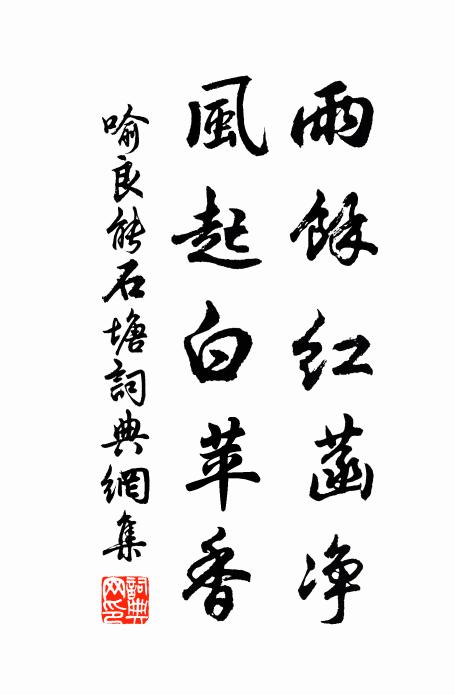 雨餘紅菡净
風起白苹香
喻良能石塘詞典網集
詞典网印